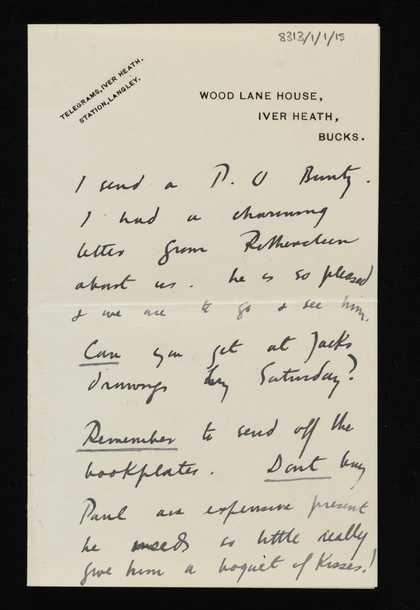 8313/1/1/15
TELEGRAMS, IVER HEATH.
STATION, LANGLEY.
WOOD LANE HOUSE,
IVER HEATH,
BUCKS.
I send a P. O Bunty.
I had a charming
letter from Rothenstein
about us. he is so pleased
& we are to go & see him.
Can you get at Jacks
drawings by Saturday?
Remember to send off the
bookplates. Dont buy
Paul an expensive present
he needs so little really
give him a boquet of Kisses!